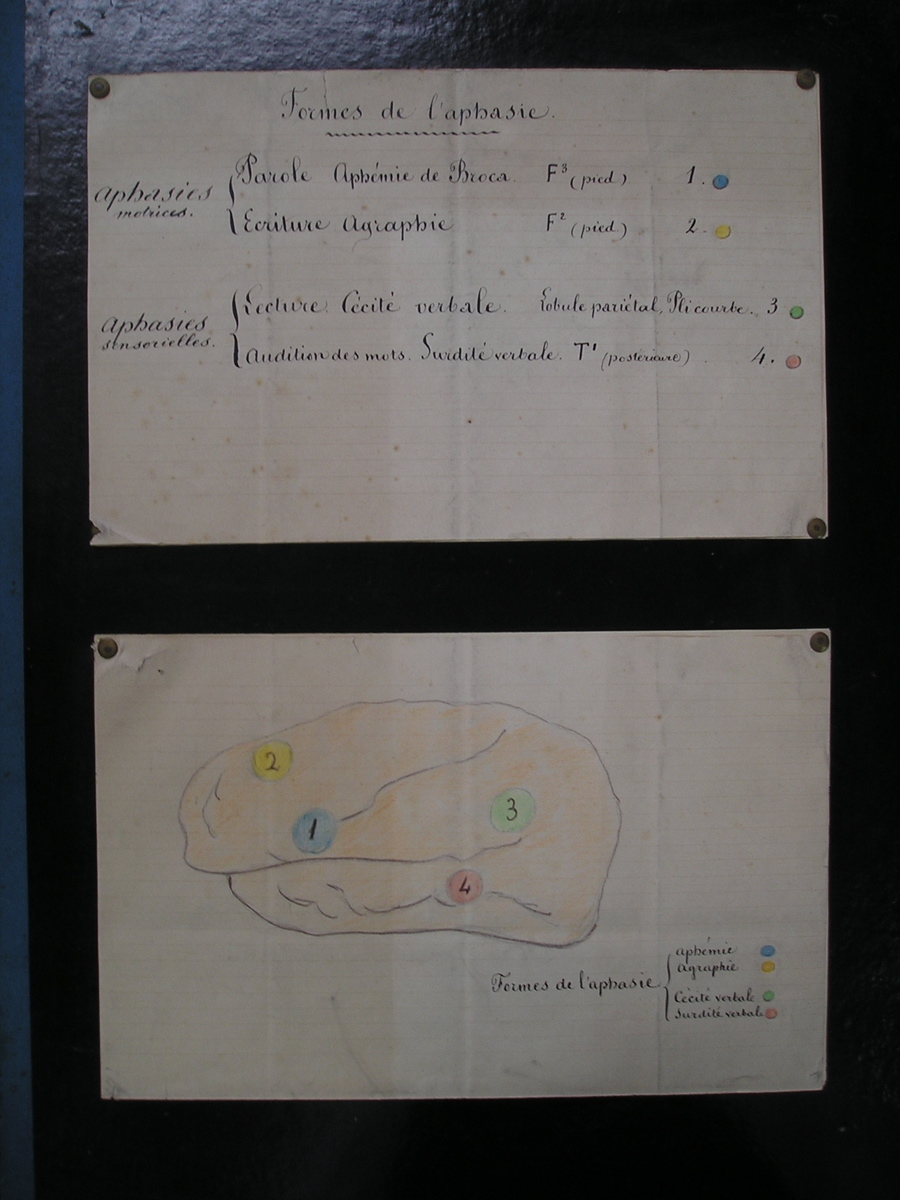 Formes de l'aphasie.
aphasies
motrices.
Parole Aphémie de Broca. F³ (pied) 1.
Ecriture Agraphie F² (pied) 2.
aphasies
sensorielles.
Lecture. Cécité verbale. Lobule pariétal, Pli courbe. 3
Audition des mots. Surdité verbale. T¹ (postérieure). 4.
2
1
3
4
Formes de l'aphasie
aphémie
agraphie
Cécité verbale
Surdité verbale